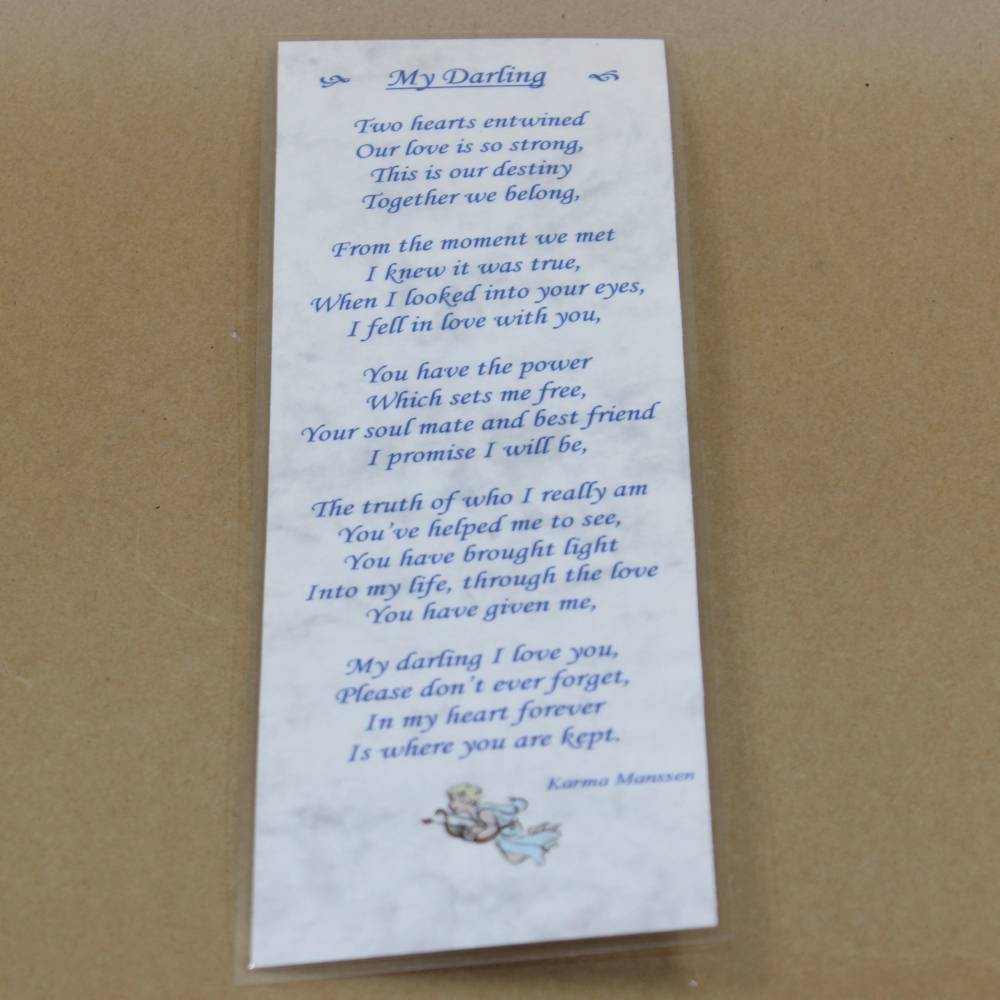 My Darling
Two hearts entwined
Our love is so strong,
This is our destiny
Together we belong,
From the moment we met
I knew it was true,
When I looked into your eyes,
I fell in love with you,
You have the power
Which sets me free,
Your soul mate and best friend
I promise I will be,
The truth of who I really am
You've helped me to see,
You have brought light
Into my life, through the love
You have given me,
My darling I love you,
Please don't ever forget,
In my heart forever
Is where you are kept.
Karma Manssen